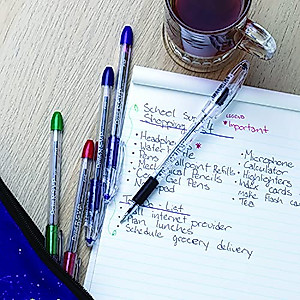 School Su
Shopping
LEGEND
* Important
• Headpho
• Water
• Pens
• Ballpoint Refills
• Mechanical Pencils
• Gel Pens
• Notepad
• Microphone
• Calculator
• Highlighters
• Index cards
make flash ca
• Tea
List
Call internet provider
Plan lunches
Schedule grocery delivery